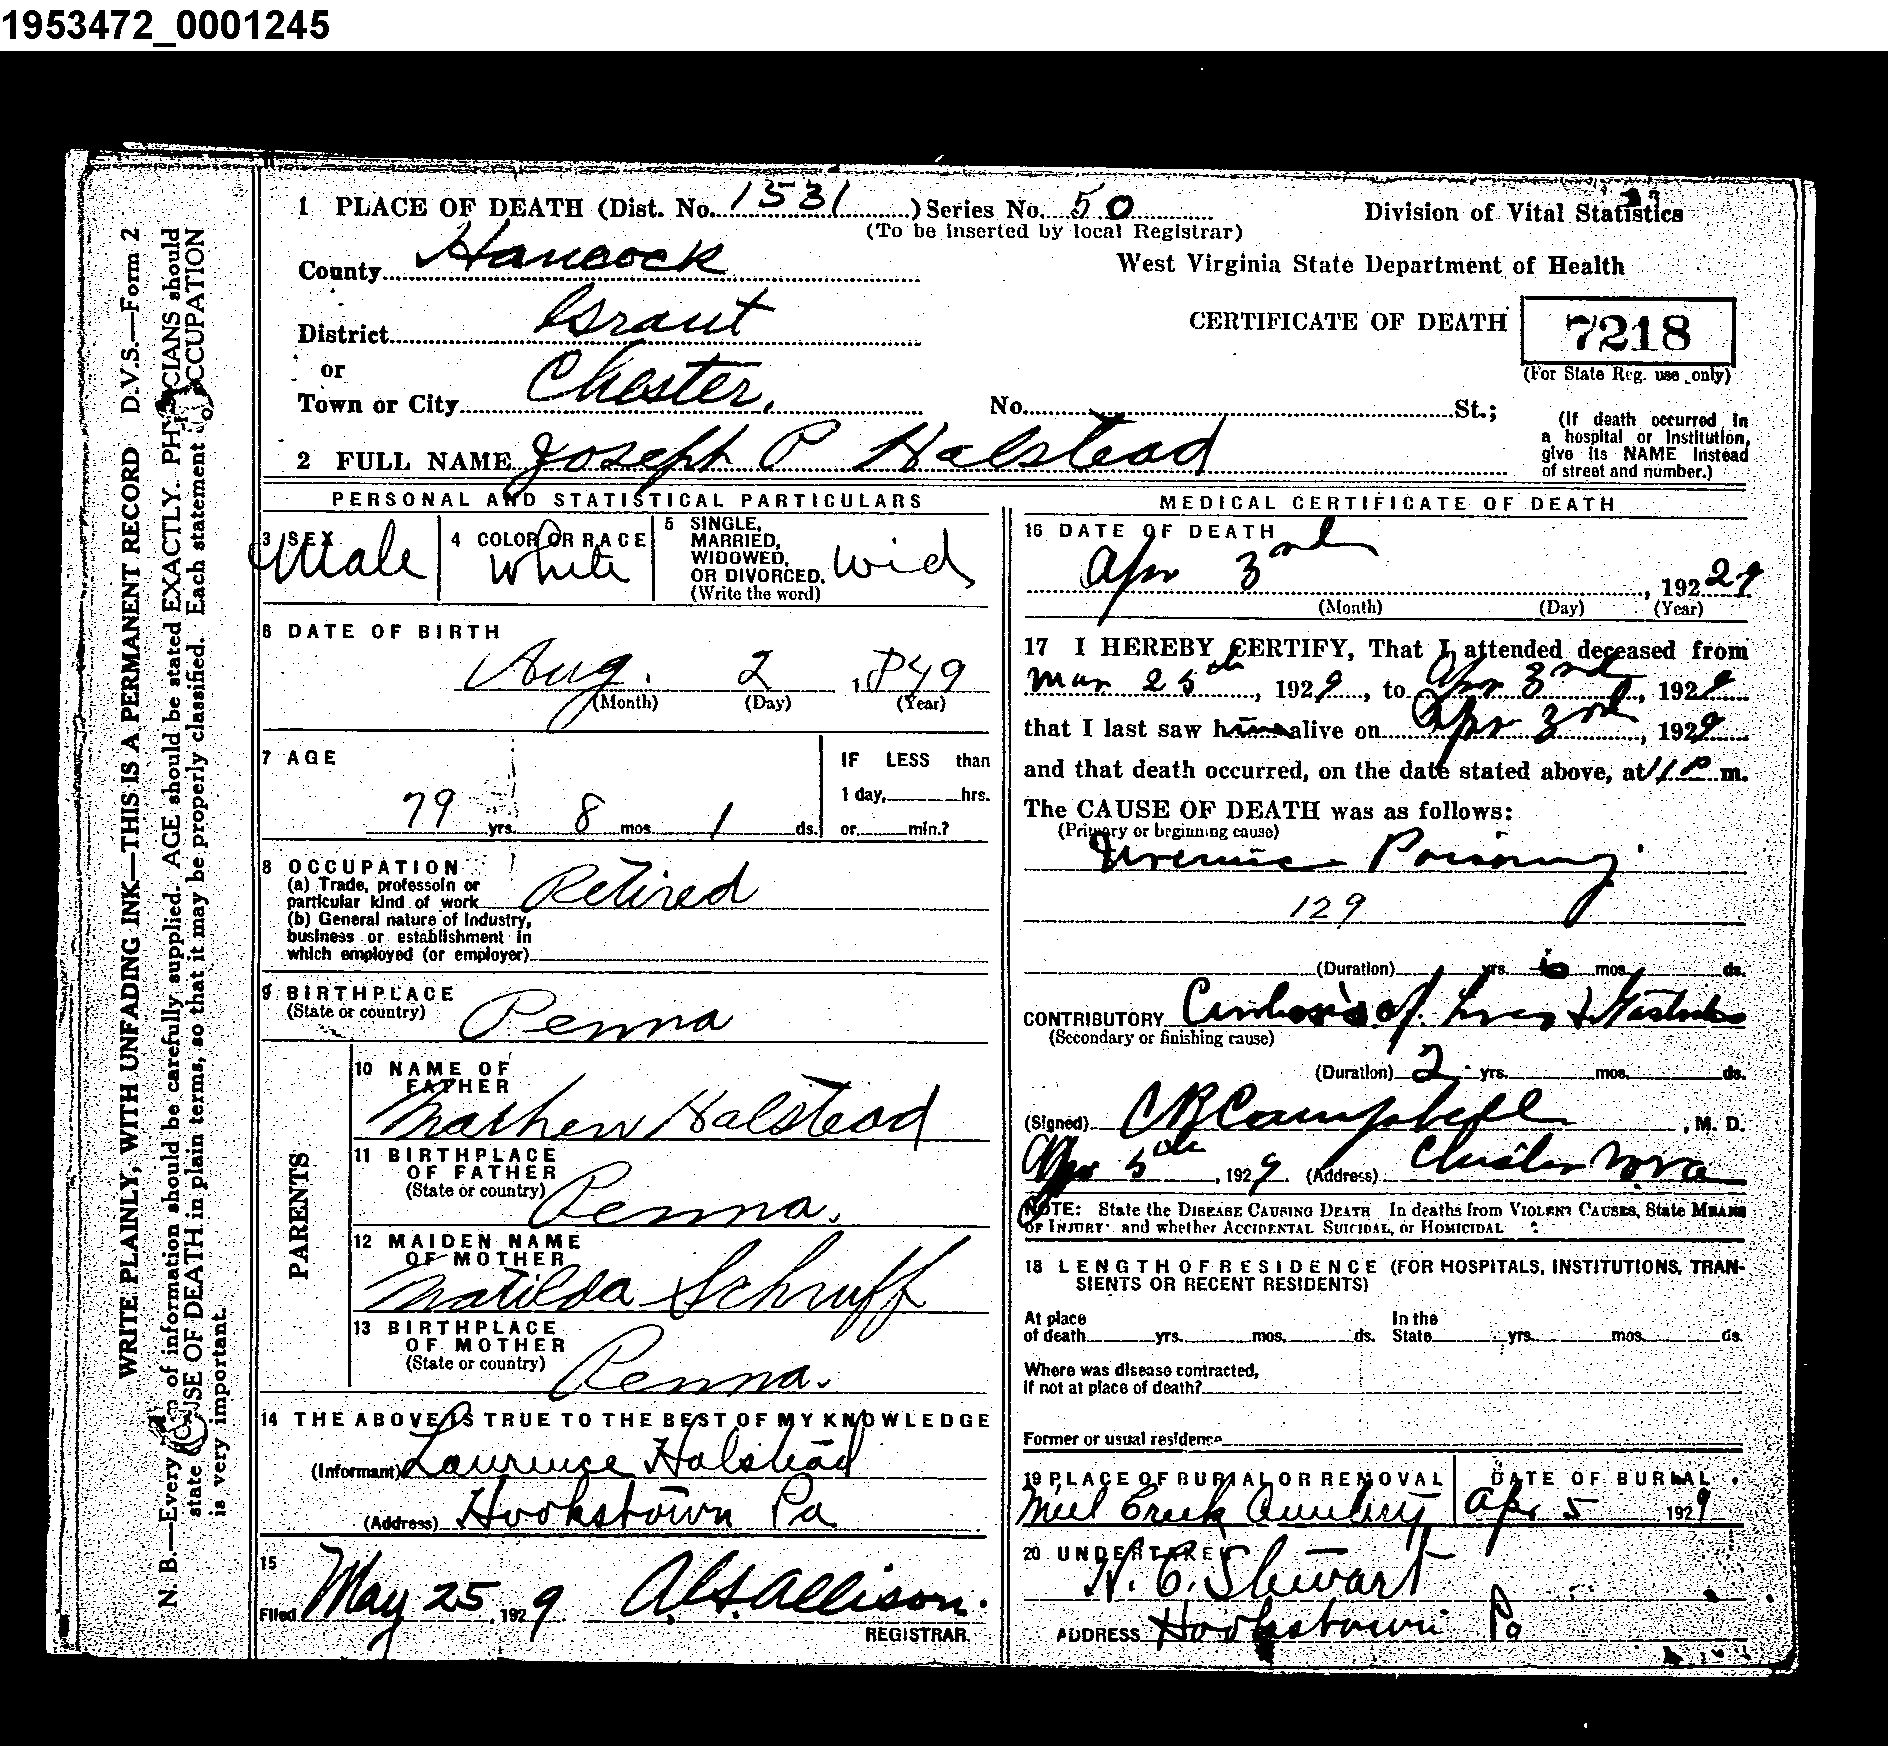 1953472_0001245
1 PLACE OF DEATH (Dist. No. 1531 ) Series No. 50
(To be inserted by local Registrar)
Division of Vital Statistics
County Hancock
West Virginia State Department of Health
District Grant
CERTIFICATE OF DEATH
7218
(For State Reg. use only)
or
Town or City Chester.
No. St.;
(If death occurred in
a hospital or institution,
give its NAME instead
of street and number.)
2 FULL NAME Joseph P Halstead
PERSONAL AND STATISTICAL PARTICULARS
3 SEX Male
4 COLOR OR RACE White
5 SINGLE,
MARRIED,
WIDOWED,
OR DIVORCED.
(Write the word)
Wid
6 DATE OF BIRTH
Aug. 2 , 1849
(Month) (Day) (Year)
7 AGE
79 yrs. 8 mos. 1 ds.
IF LESS than
1 day, hrs.
or min.?
8 OCCUPATION
(a) Trade, professoin or
particular kind of work Retired
(b) General nature of Industry,
business or establishment in
which employed (or employer)
9 BIRTHPLACE
(State or country) Penna
PARENTS
10 NAME OF
FATHER
Mathew Halstead
11 BIRTHPLACE
OF FATHER
(State or country) Penna.
12 MAIDEN NAME
OF MOTHER
Matilda Schruff
13 BIRTHPLACE
OF MOTHER
(State or country) Penna.
14 THE ABOVE IS TRUE TO THE BEST OF MY KNOWLEDGE
(Informant) Laurence Halstead
(Address) Hookstown Pa
15
Filed May 25, 1929 Allison.
REGISTRAR.
MEDICAL CERTIFICATE OF DEATH
16 DATE OF DEATH
Apr 3rd , 192 29
(Month) (Day) (Year)
17 I HEREBY CERTIFY, That I attended deceased from
Mar 25th , 1929, to Apr 3rd , 1929
that I last saw him alive on Apr 3rd , 1929
and that death occurred, on the date stated above, at 11 P m.
The CAUSE OF DEATH was as follows:
(Primary or beginning cause)
Uremic Poisoning
129
(Duration) yrs. mos. ds.
CONTRIBUTORY Cirrhosis of Liver &
(Secondary or finishing cause)
(Duration) 2 yrs. mos. ds.
(Signed) CR Campbell , M. D.
Apr 5th , 1929. (Address) Chester W Va
NOTE: State the DISEASE CAUSING DEATH In deaths from VIOLENT CAUSES, State MEANS
OF INJURY and whether ACCIDENTAL SUICIDAL, or HOMICIDAL
18 LENGTH OF RESIDENCE (FOR HOSPITALS, INSTITUTIONS, TRAN-
SIENTS OR RECENT RESIDENTS)
At place
of death yrs. mos. ds.
In the
State yrs. mos. ds.
Where was disease contracted,
if not at place of death?
Former or usual residence
19 PLACE OF BURIAL OR REMOVAL
Mill Creek Cemetery
DATE OF BURIAL
Apr 5 1929
20 UNDERTAKER
H. C. Stewart
ADDRESS Hookstown Pa
WRITE PLAINLY, WITH UNFADING INK—THIS IS A PERMANENT RECORD D.V.S.—Form 2
N. B.—Every item of information should be carefully supplied. AGE should be stated EXACTLY. PHYSICIANS should
state CAUSE OF DEATH in plain terms, so that it may be properly classified. Each statement of OCCUPATION
is very important.